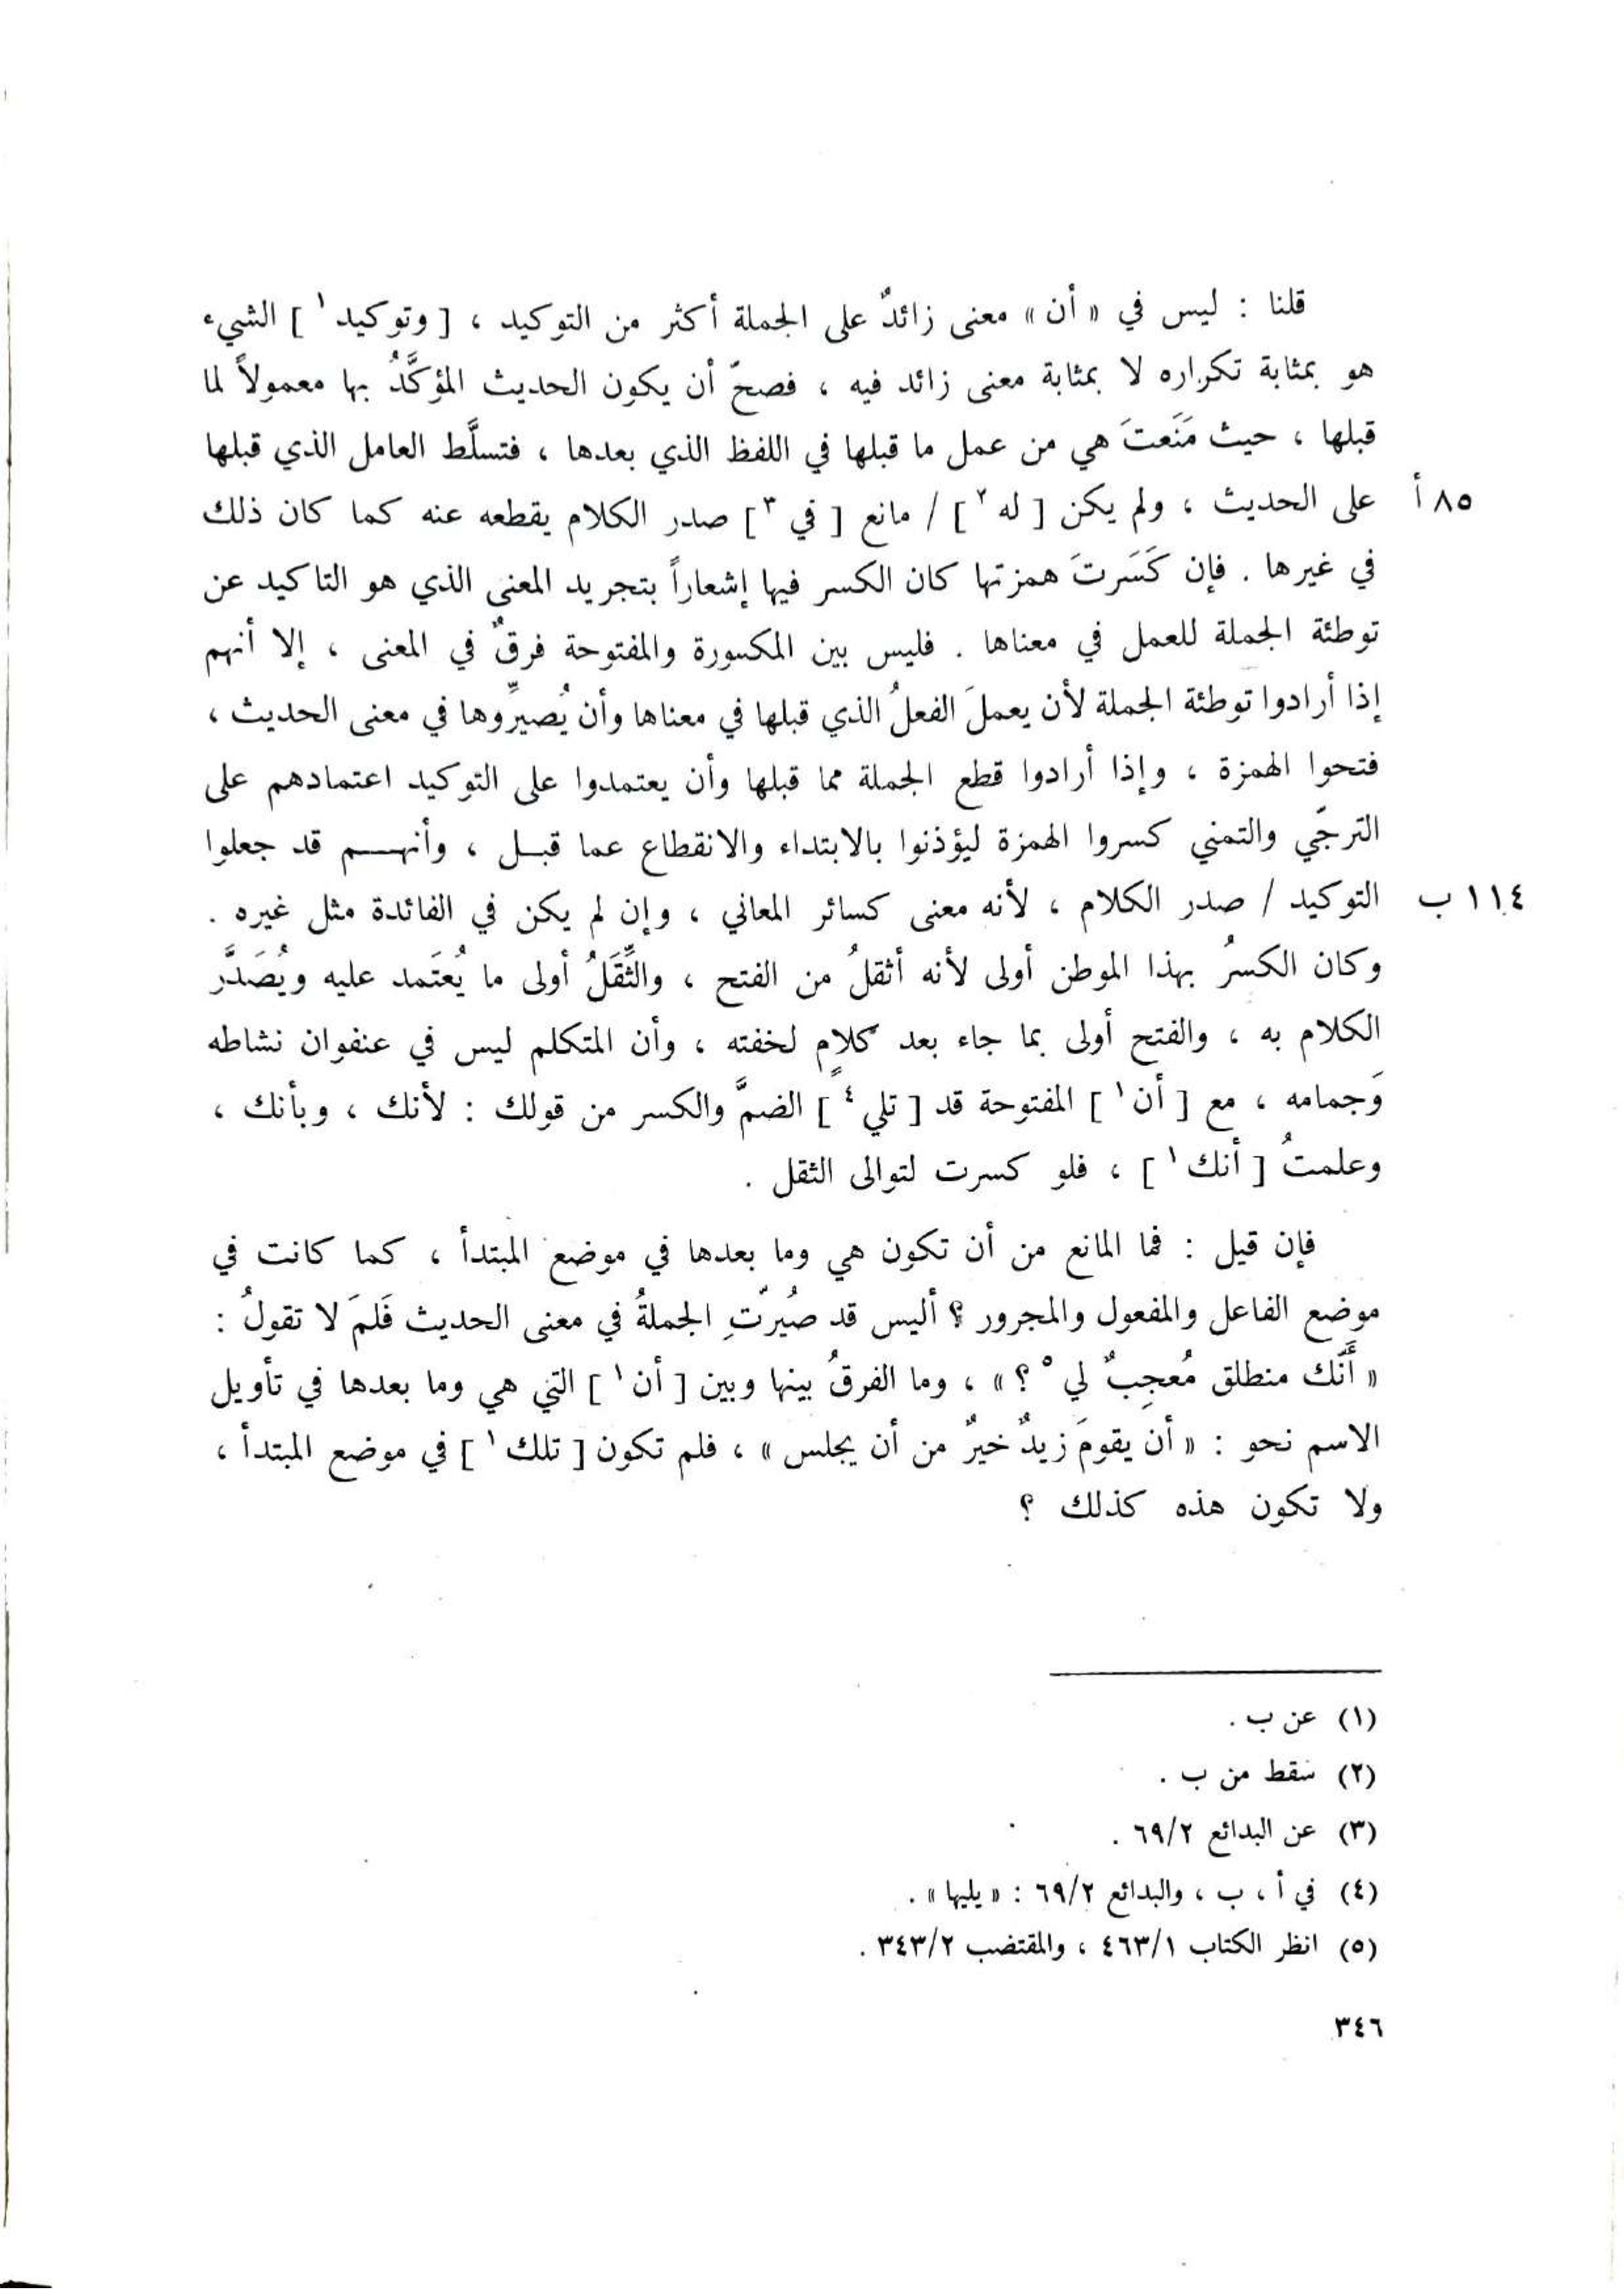 قلنا : ليس في « أن » معنى زائدٌ على الجملة أكثر من التوكيد ، [ وتوكيد ١ ] الشيء
هو بمثابة تكراره لا بمثابة معنى زائد فيه ، فصحّ أن يكون الحديث المؤكَّدُ بها معمولاً لما
قبلها ، حيث مَنَعتَ هي من عمل ما قبلها في اللفظ الذي بعدها ، فتسلَّط العامل الذي قبلها
على الحديث ، ولم يكن [ له ٢ ] / مانع [ في ٣ ] صدر الكلام يقطعه عنه كما كان ذلك ٨٥ أ
في غيرها . فإن كَسَرتَ همزتها كان الكسر فيها إشعاراً بتجريد المعنى الذي هو التاكيد عن
توطئة الجملة للعمل في معناها . فليس بين المكسورة والمفتوحة فرقٌ في المعنى ، إلا أنهم
إذا أرادوا توطئة الجملة لأن يعملَ الفعلُ الذي قبلها في معناها وأن يُصيرِّوها في معنى الحديث ،
فتحوا الهمزة ، وإذا أرادوا قطع الجملة مما قبلها وأن يعتمدوا على التوكيد اعتمادهم على
الترجّي والتمني كسروا الهمزة ليؤذنوا بالابتداء والانقطاع عما قبل ، وأنهم قد جعلوا
التوكيد / صدر الكلام ، لأنه معنى كسائر المعاني ، وإن لم يكن في الفائدة مثل غيره . ١١٤ ب
وكان الكسرُ بهذا الموطن أولى لأنه أثقلُ من الفتح ، والثِّقَلُ أولى ما يُعتَمد عليه ويُصَدَّر
الكلام به ، والفتح أولى بما جاء بعد كلامٍ لخفته ، وأن المتكلم ليس في عنفوان نشاطه
وَجمامه ، مع [ أن ١ ] المفتوحة قد [ تلي ٤ ] الضمَّ والكسر من قولك : لأنك ، وبأنك ،
وعلمتُ [ أنك ١ ] ، فلو كسرت لتوالى الثقل .
فإن قيل : فما المانع من أن تكون هي وما بعدها في موضع المبتدأ ، كما كانت في
موضع الفاعل والمفعول والمجرور ؟ أليس قد صُيرّتِ الجملةُ في معنى الحديث فَلمَ لا تقولُ :
« أَنَّك منطلق مُعجِبٌ لي ٥ ؟ » ، وما الفرقُ بينها وبين [ أن ١ ] التي هي وما بعدها في تأويل
الاسم نحو : « أن يقومَ زيدٌ خيرٌ من أن يجلس » ، فلم تكون [ تلك ١ ] في موضع المبتدأ ،
ولا تكون هذه كذلك ؟
(١) عن ب .
(٢) سقط من ب .
(٣) عن البدائع ٦٩/٢ .
(٤) في أ ، ب ، والبدائع ٦٩/٢ : « يليها » .
(٥) انظر الكتاب ٤٦٣/١ ، والمقتضب ٣٤٣/٢ .
٣٤٦